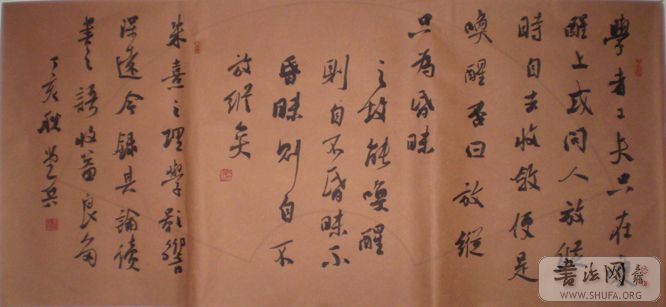 學者工夫只在喚
醒上或問人放縱
時自去收斂便是
喚醒否曰放縱
只為昏昧
之故能喚醒
則自不昏昧不
昏昧則自不
放縱矣
朱熹之理學影響
深遠今録其論讀
書之語收良
丁亥耿兵
書法网
WWW.SHUFA.ORG